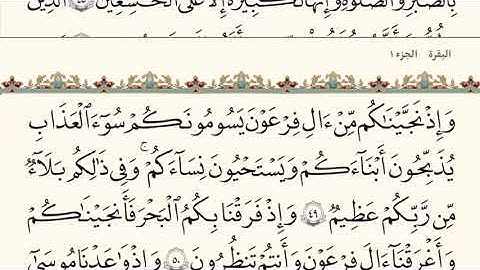 بِالصَّبْرِ وَالصَّلَوٰةِ وَإِنَّهَا لَكَبِيرَةٌ إِلَّا عَلَى الْخَٰشِعِينَ ٤٥ الَّذِينَ
البقرة الجزء ١
وَإِذْ نَجَّيْنَٰكُم مِّنْ ءَالِ فِرْعَوْنَ يَسُومُونَكُمْ سُوٓءَ الْعَذَابِ
يُذَبِّحُونَ أَبْنَآءَكُمْ وَيَسْتَحْيُونَ نِسَآءَكُمْ ۚ وَفِي ذَٰلِكُم بَلَآءٌ
مِّن رَّبِّكُمْ عَظِيمٌ ٤٩ وَإِذْ فَرَقْنَا بِكُمُ الْبَحْرَ فَأَنجَيْنَٰكُمْ
وَأَغْرَقْنَآ ءَالَ فِرْعَوْنَ وَأَنتُمْ تَنظُرُونَ ٥٠ وَإِذْ وَٰعَدْنَا مُوسَىٰٓ